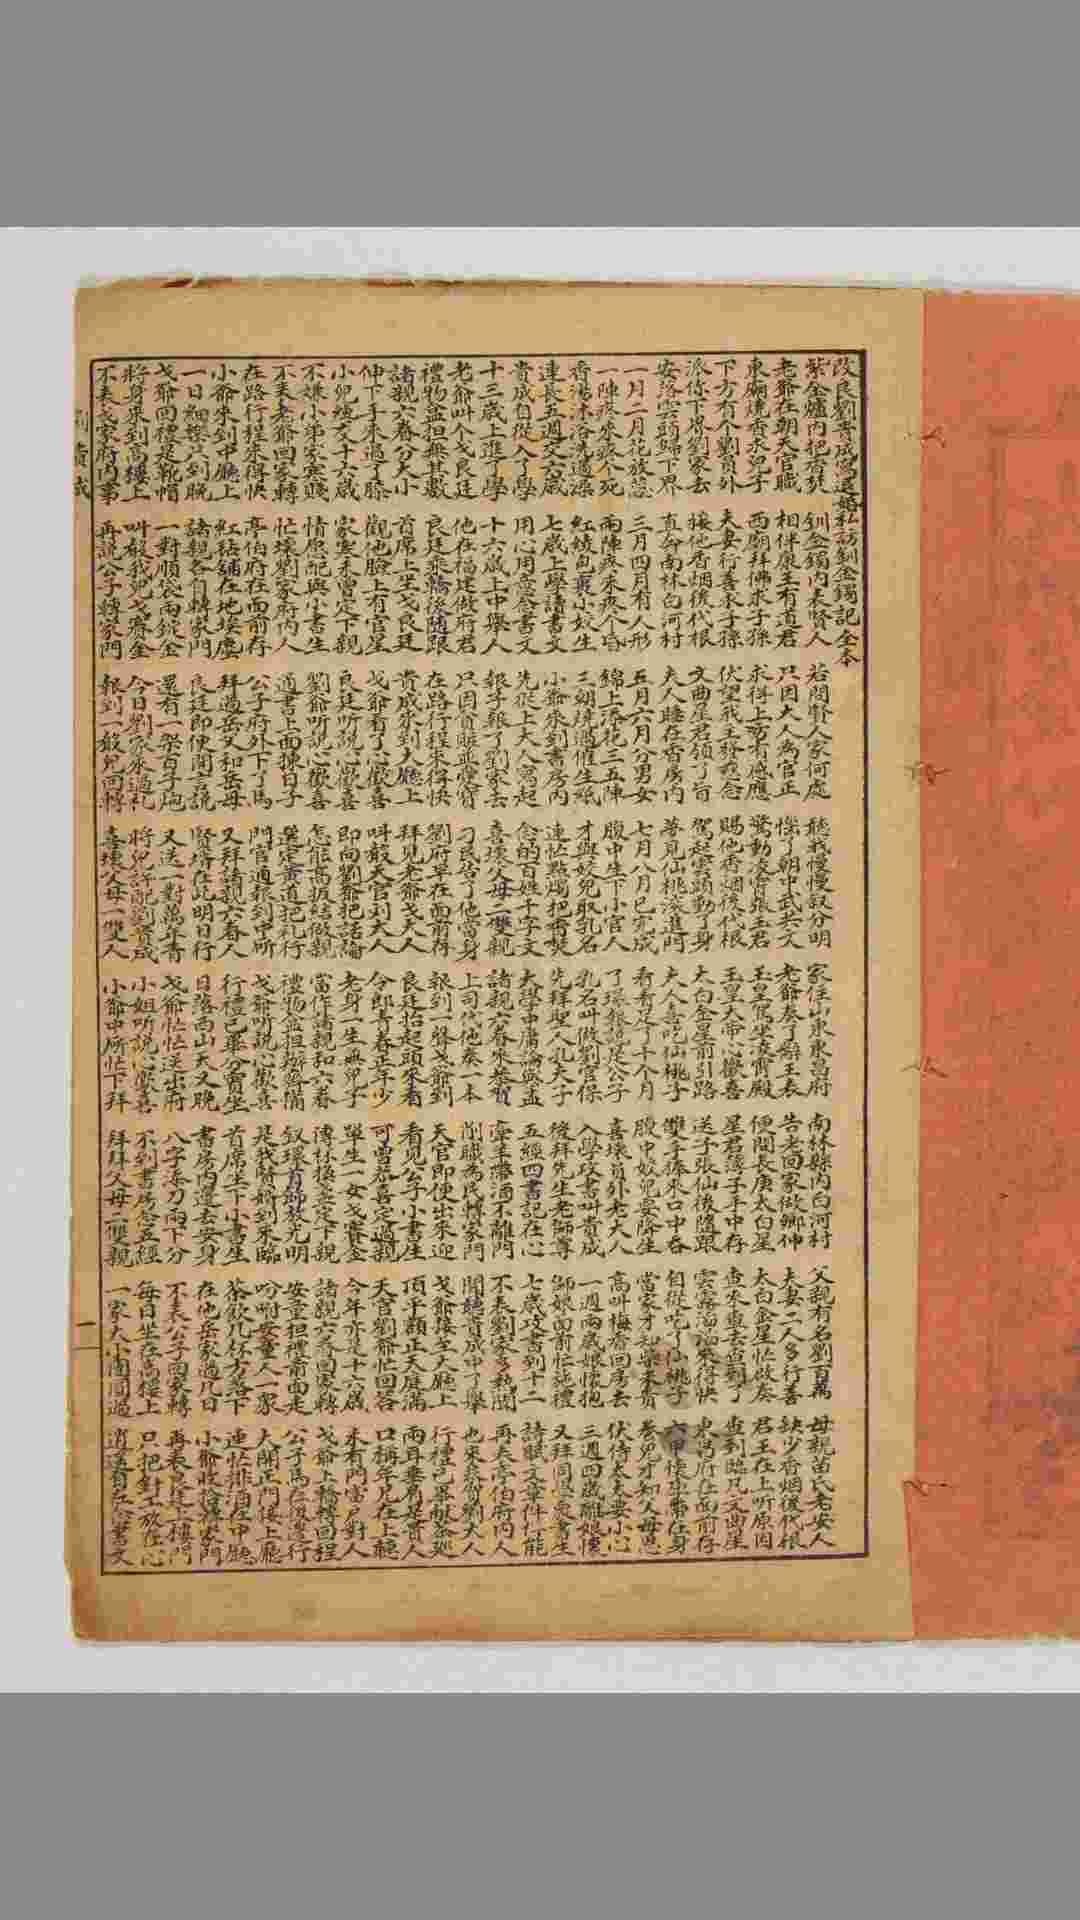 改良劉貴成寫退婚私訪釧金鐲記全本
紫金爐內把香焚 釧金鐲內表賢人 若問賢人家何處 聽我慢慢叙分明 家住山東東昌府 南林縣內白河村 父親有名劉百萬 母親苗氏老安人
老爺在朝天官職 相伴康王有道君 只因大人為官正 惱了朝中武共文 老爺奏了辭王表 告老回家做鄉伸 夫妻二人多行善 缺少香烟後代根
東廟燒香求兒子 西廟拜佛求子孫 求得上蒼有感應 驚動凌霄張玉君 玉皇駕坐凌霄殿 便問長庚太白星 太白金星忙啟奏 君王在上听原因
下方有個劉員外 夫妻行善求子孫 伏望我王發慈念 賜他香烟後代根 玉皇大帝心歡喜 星君簿子手中存 查來查去查到了 查到臨凡文曲星
派你下界劉家去 接他香烟後代根 文曲星君領了旨 駕起雲頭動了身 太白金星前引路 送子張仙後隨跟 雲霧滔滔來得快 東昌府在面前存
安落雲頭歸下界 直奔南林白河村 夫人睡在香房內 夢見仙桃滾進門 夫人急吃仙桃子 雙手捧來口中吞 自從吃了仙桃子 六甲懷孕帶在身
一月二月花放蕊 三月四月有人形 五月六月分男女 七月八月已完成 看看足了十个月 腹中姣兒要降生 當家才知柴米貴 養兒才知父母恩
一陣疼來疼个死 兩陣疼來疼个昏 綿上添花三五陣 腹中生下小官人 了環報說是公子 喜壞員外老大人 高叫梅香回房去 伏侍太太要小心
香湯沐浴洗過澡 紅綾包裹小姣生 三朝燒過催生紙 才與姣兒取乳名 乳名叫做劉官保 入學攻書叫貴成 一週兩歲娘懷抱 三週四歲離娘懷
連長五週交六歲 七歲上學讀書文 小爺來到書房內 連忙點燭把香焚 先拜聖人孔夫子 後拜先生老師尊 師娘面前忙施禮 又拜同學衆書生
貴成自從入了學 用心用意念書文 先從上大人寫起 念的百姓千字文 大學中庸論與孟 五經四書記在心 七歲攻書到十二 詩賦文章件件能
十三歲上進了學 十六歲上中舉人 報子報了劉家去 喜壞父母二雙親 諸親六眷來恭賀 牽羊帶酒不離門 不表劉家多熱鬧 再表亭伯府內人
老爺叫个戈良廷 他在福建做府君 只因貪賍並愛寶 刁民告了他當身 上司代他奏一本 削職為民轉家門 聞聽貴成中了舉 也來恭賀劉大人
禮物盒担無其數 良廷乘轎後隨跟 在路行程來得快 劉府早在面前存 報到一聲戈爺到 天官即便出來迎 戈爺接至大廳上 行禮已畢献茶廵
諸親六眷分大小 首席上坐戈良廷 貴成來到大廳上 拜見老爺戈夫人 良廷抬起頭來看 看見公子小書生 頂平額正天庭滿 兩耳垂肩是貴人
伸下手來過了膝 觀他臉上有官星 戈爺看了心歡喜 叫聲天官刘大人 令郎青春正年少 可曾恭喜定過親 天官劉爺忙回答 口稱年兄在上聽
小兒纔交十六歲 家寒未曾定下親 良廷听說心歡喜 即向劉爺把話論 老身一生無兒子 單生一女戈賽金 今年亦是十六歲 未有門當户對人
不嫌小弟家寒賤 情愿配與小書生 劉爺听說心歡喜 怎能高扳結做親 當作諸親和六眷 傳杯換盞定下親 諸親六眷回家轉 戈爺上轎轉回程
不表老爺回家轉 忙壞劉家府內人 通書上面揀日子 選定黃道把礼行 禮物盒担辦齊備 釵環首飾放光明 安童担禮前面走 公子馬在後邊行
在路行程來得快 亭伯府在面前存 公子府外下了馬 門官通報到中所 戈爺听說心歡喜 是我賢婿到來臨 吩咐安童人一家 大開正門接上廳
小爺來到中廳上 紅毡舖在地埃塵 拜過岳父和岳母 又拜諸戚六眷人 行禮已畢分賓坐 首席坐下小書生 茶飲几杯方落下 連忙排酒在中廳
一日細樂只到晚 諸親各自轉家門 良廷即便開言說 賢婿在此明日行 日落西山天又晚 書房內邊去安身 在他岳家過几日 小爺收拾轉家門
戈爺回禮是靴帽 一對順袋兩錠金 還有一架百子炮 又送一對萬年青 戈爺忙忙送出府 八字添刀兩下分 不表公子回家轉 再表良廷上樓門
將身來到高樓上 叫聲我兒戈賽金 今日劉家來過礼 將兒許配劉貴成 小姐听說心歡喜 不到書房念五經 每日坐在高樓上 只把針工放在心
不表戈家府內事 再說公子轉家門 報到一聲兒回轉 喜壞父母一雙人 小爺中所忙下拜 拜拜父母二雙親 一家大小團圓過 逍遙自在念書文
劉貴成 一